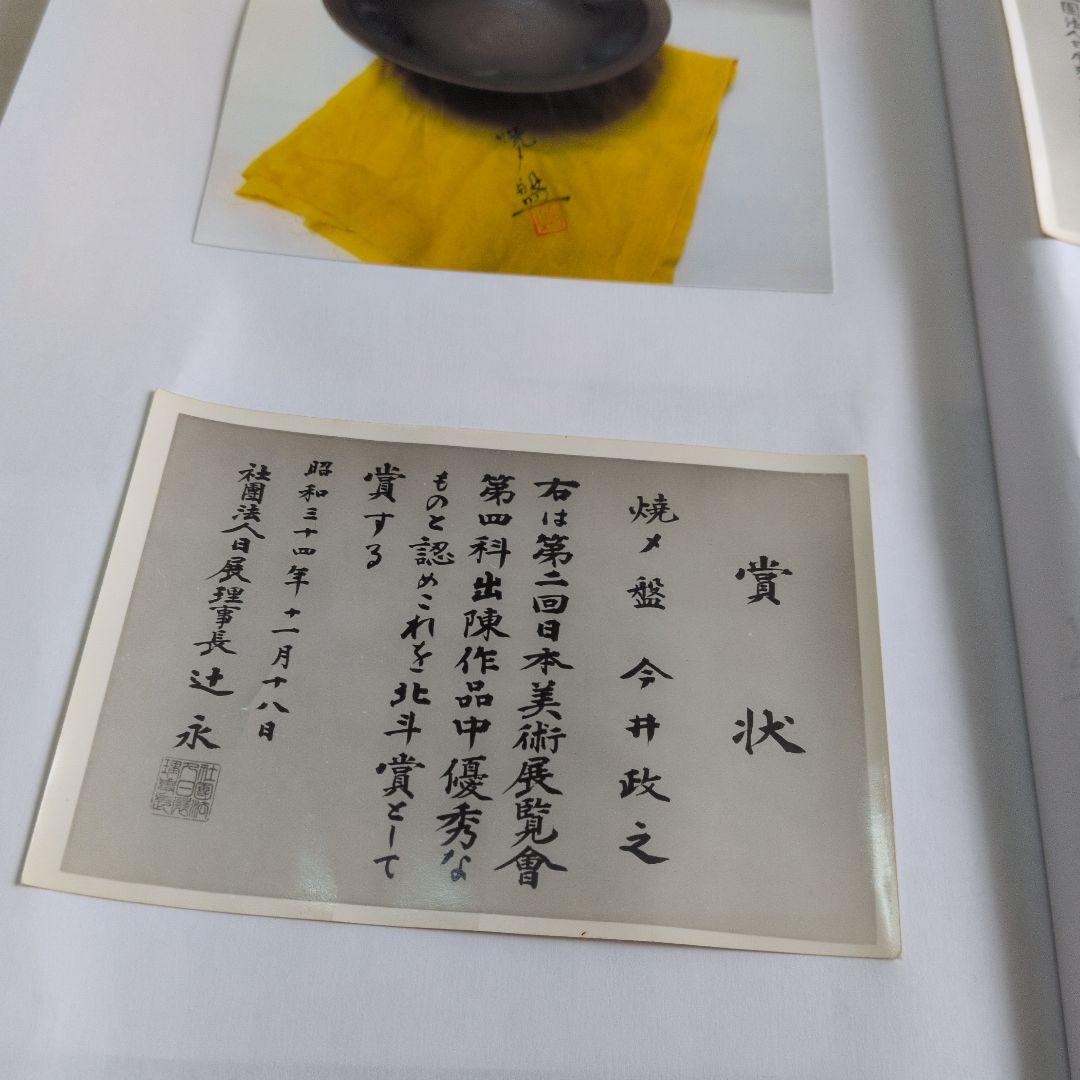 焼〆
盤
賞状
焼〆盤 今井政之
右は第二回日本美術展覧會
第四科出陳作品中優秀な
ものと認めこれを北斗賞として
賞する
昭和三十四年十一月十八日
社團法人日展理事長
辻永